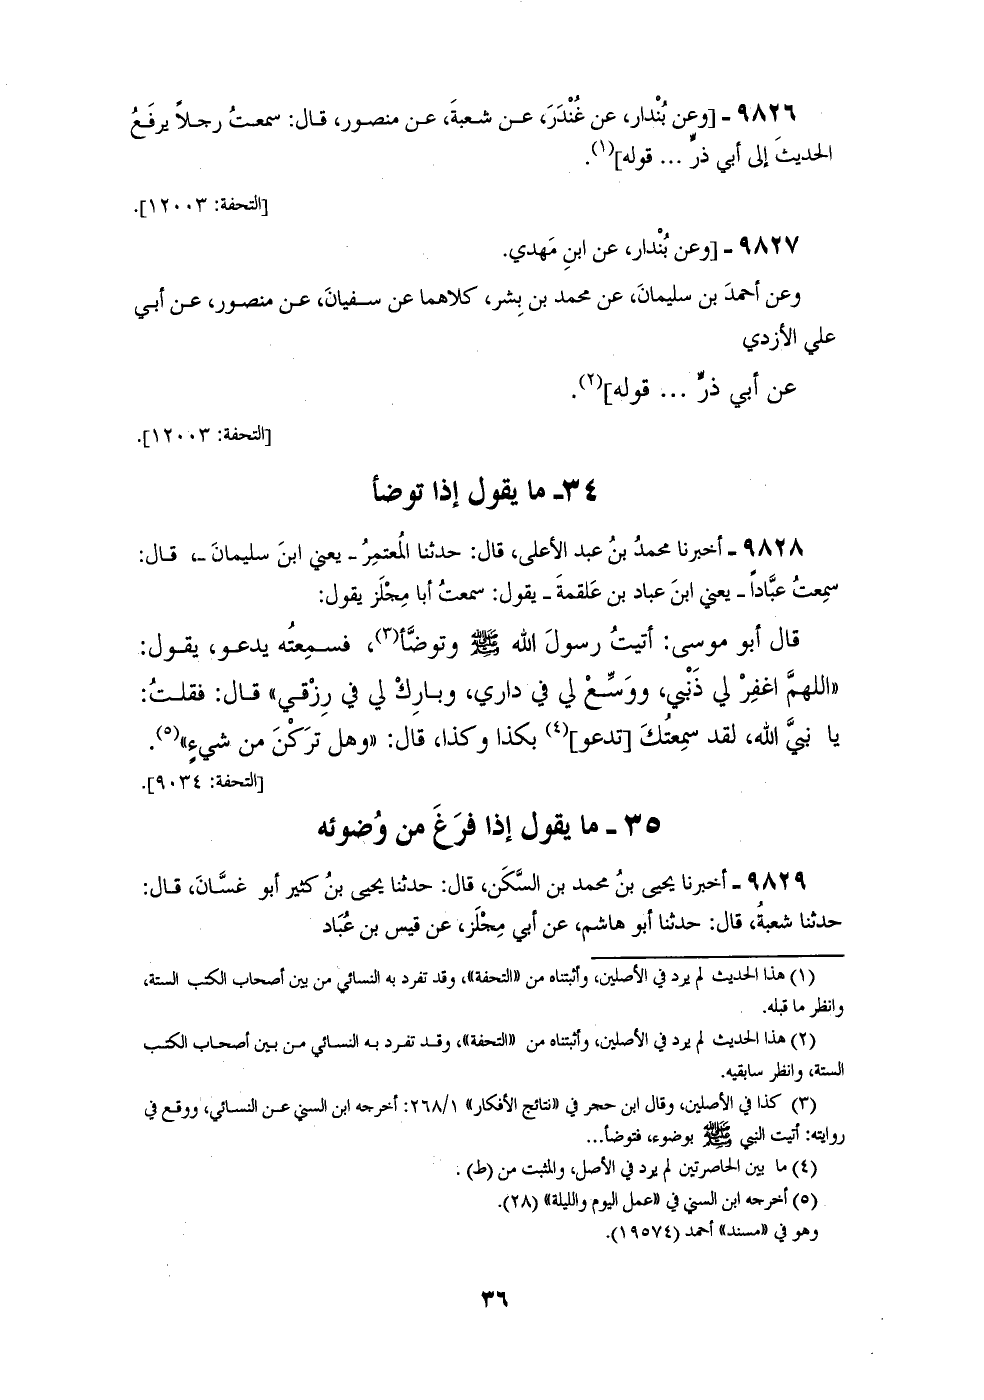 ٩٨٢٦ ـ [وعن بُنْدار، عن غُنْدَرَ، عـن شعبةَ، عـن منصور، قـال: سمعـتُ رجـلاً يرفَـعُ
الحديثَ إلى أبي ذرٍّ ... قوله](١).
[التحفة: ١٢٠٠٣].
٩٨٢٧ ـ [وعن بُنْدار، عن ابنِ مَهدي.
وعن أحمدَ بن سليمانَ، عن محمد بن بِشر، كلاهما عن سـفيانَ، عـن منصـور، عـن أبـي
علي الأزدي
عن أبي ذرٍّ ... قوله](٢).
[التحفة: ١٢٠٠٣].
٣٤ـ ما يقول إذا توضأ
٩٨٢٨ ـ أخبرنا محمدُ بنُ عبد الأعلى، قال: حدثنا المُعتمِرُ ـ يعني ابنَ سليمانَ ـ، قـال:
سمِعتُ عبَّاداً ـ يعني ابنَ عباد بن عَلقمةَ ـ يقول: سمعتُ أبا مِجْلَزٍ يقول:
قال أبو موسى: أتيتُ رسولَ الله ﷺ وتوضَّأ(٣)، فسـمِعتُه يدعـو، يقـول:
«اللهمَّ اغفِرْ لي ذَنْبي، ووَسِّعْ لي في داري، وبارِكْ لي في رِزْقي» قـال: فقلـتُ:
يا نبيَّ الله، لقد سمِعتُكَ [تدعو](٤) بكذا وكذا، قال: «وهل تَركْنَ من شيءٍ»(٥).
[التحفة: ٩٠٣٤].
٣٥ ـ ما يقول إذا فرَغَ من وُضوئه
٩٨٢٩ ـ أخبرنا يحيى بنُ محمد بن السَّكَن، قال: حدثنا يحيى بنُ كثير أبو غسَّانَ، قـال:
حدثنا شعبةُ، قال: حدثنا أبو هاشم، عن أبي مِجْلَز، عن قيس بن عُبَاد
(١) هذا الحديث لم يرد في الأصلين، وأثبتناه من «التحفة»، وقد تفرد به النسائي من بين أصحاب الكتب الستة،
وانظر ما قبله.
(٢) هذا الحديث لم يرد في الأصلين، وأثبتناه من «التحفة»، وقـد تفـرد بـه النسـائي مـن بـين أصحـاب الكتـب
الستة، وانظر سابقيه.
(٣) كذا في الأصلين، وقال ابن حجر في «نتائج الأفكار» ٢٦٨/١: أخرجه ابن السني عـن النسـائي، ووقـع في
روايته: أتيت النبي ﷺ بوضوء، فتوضأ...
(٤) ما بين الحاصرتين لم يرد في الأصل، والمثبت من (ط) .
(٥) أخرجه ابن السني في «عمل اليوم والليلة» (٢٨).
وهو في «مسند» أحمد (١٩٥٧٤).
٣٦